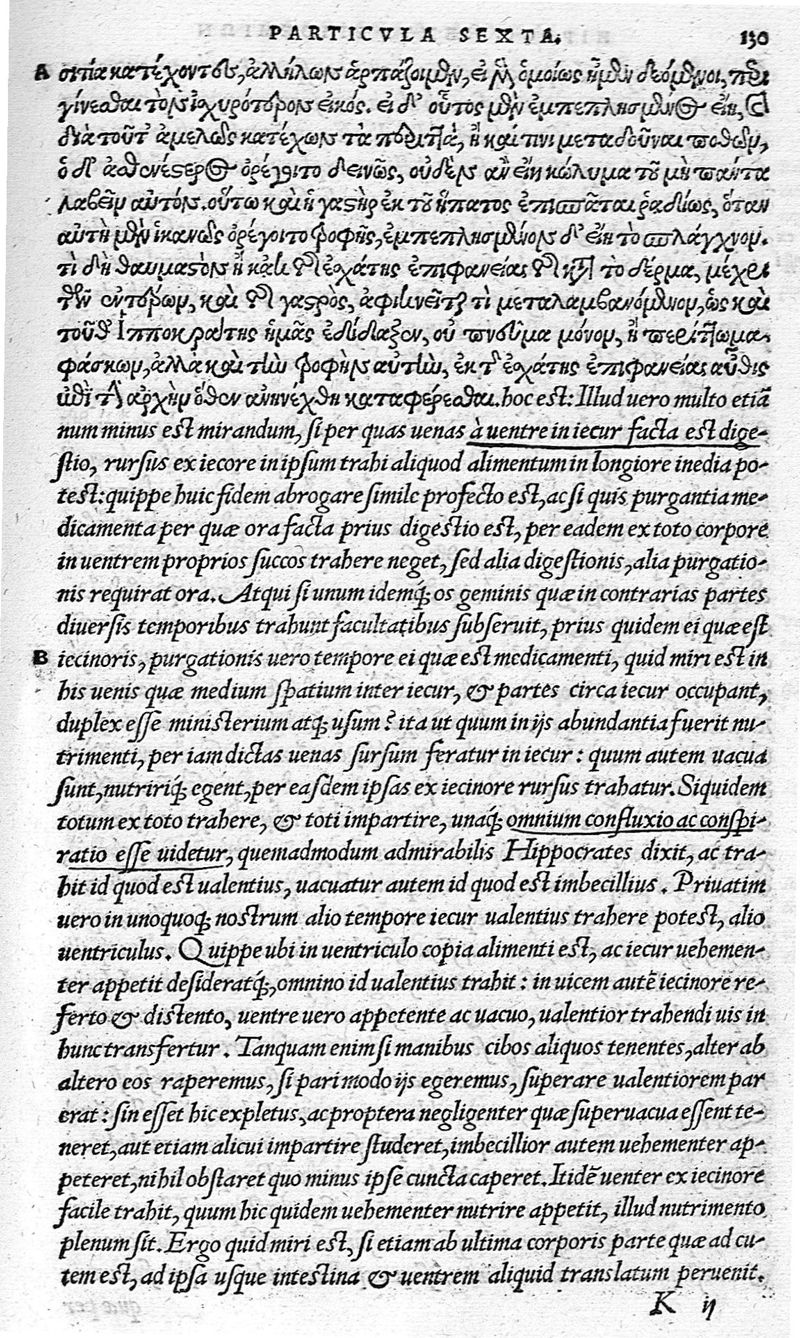 PARTICVLA SEXTA. 130
A σιτία κατέχοντες, ἀλλήλων ἁρπάζοιμεν, εἰ μὲν ὁμοίως ἦμεν δεόμενοι, περι-
γίνεσθαι τὸν ἰσχυρότερον εἰκός. εἰ δ' οὗτος μὲν ἐμπεπλησμένος εἴη, καὶ
διὰ τοῦτ' ἀμελῶς κατέχων τὰ περιττὰ, ἢ καί τινι μεταδοῦναι ποθῶν,
ὁ δ' ἀσθενέστερος ὀρέγοιτο δεινῶς, οὐδὲν ἂν εἴη κώλυμα τοῦ μὴ πάντα
λαβεῖν αὐτόν. οὕτω καὶ ἡ γαστὴρ ἐκ τοῦ ἥπατος ἐπισπᾶται ῥαδίως, ὅταν
αὐτὴ μὲν ἱκανῶς ὀρέγοιτο τροφῆς, ἐμπεπλησμένον δ' εἴη τὸ σπλάγχνον.
τί δὴ θαυμαστὸν ἢ καὶ τῆς ἐσχάτης ἐπιφανείας τῆς κατὰ τὸ δέρμα, μέχρι
τῶν ἐντέρων, καὶ τῆς γαστρὸς, ἀφικνεῖταί τι μεταλαμβανόμενον, ὡς καὶ
τοῦθ' Ἱπποκράτης ἡμᾶς ἐδίδαξεν, οὐ πνεῦμα μόνον, ἢ περίττωμα
φάσκων, ἀλλὰ καὶ τὴν τροφὴν αὐτὴν, ἐκ τῆς ἐσχάτης ἐπιφανείας αὖθις
ἐπὶ τὴν ἀρχὴν ὅθεν ἀνηνέχθη καταφέρεσθαι. hoc est: Illud uero multo etiā
num minus est mirandum, si per quas uenas à uentre in iecur facta est dige-
stio, rursus ex iecore in ipsum trahi aliquod alimentum in longiore inedia po-
test: quippe huic fidem abrogare simile profecto est, ac si quis purgantia me-
dicamenta per quæ ora facta prius digestio est, per eadem ex toto corpore
in uentrem proprios succos trahere neget, sed alia digestionis, alia purgatio-
nis requirat ora. Atqui si unum idemq; os geminis quæ in contrarias partes
diuersis temporibus trahunt facultatibus subseruit, prius quidem ei quæ est
B iecinoris, purgationis uero tempore ei quæ est medicamenti, quid miri est in
his uenis quæ medium spatium inter iecur, & partes circa iecur occupant,
duplex esse ministerium atq; usum? ita ut quum in ijs abundantia fuerit nu-
trimenti, per iam dictas uenas sursum feratur in iecur: quum autem uacua
sunt, nutririq; egent, per easdem ipsas ex iecinore rursus trahatur. Siquidem
totum ex toto trahere, & toti impartire, unaq; omnium confluxio ac conspi-
ratio esse uidetur, quemadmodum admirabilis Hippocrates dixit, ac tra-
hit id quod est ualentius, uacuatur autem id quod est imbecillius. Priuatim
uero in unoquoq; nostrum alio tempore iecur ualentius trahere potest, alio
uentriculus. Quippe ubi in uentriculo copia alimenti est, ac iecur uehemen-
ter appetit desideratq;, omnino id ualentius trahit: in uicem autē iecinore re-
ferto & distento, uentre uero appetente ac uacuo, ualentior trahendi uis in
hunc transfertur. Tanquam enim si manibus cibos aliquos tenentes, alter ab
altero eos raperemus, si pari modo ijs egeremus, superare ualentiorem par
erat: sin esset hic expletus, ac propterea negligenter quæ superuacua essent te-
neret, aut etiam alicui impartire studeret, imbecillior autem uehementer ap-
peteret, nihil obstaret quo minus ipse cuncta caperet. Itidē uenter ex iecinore
facile trahit, quum hic quidem uehementer nutrire appetit, illud nutrimento
plenum sit. Ergo quid miri est, si etiam ab ultima corporis parte quæ ad cu-
tem est, ad ipsa usque intestina & uentrem aliquid translatum peruenit.
K ij